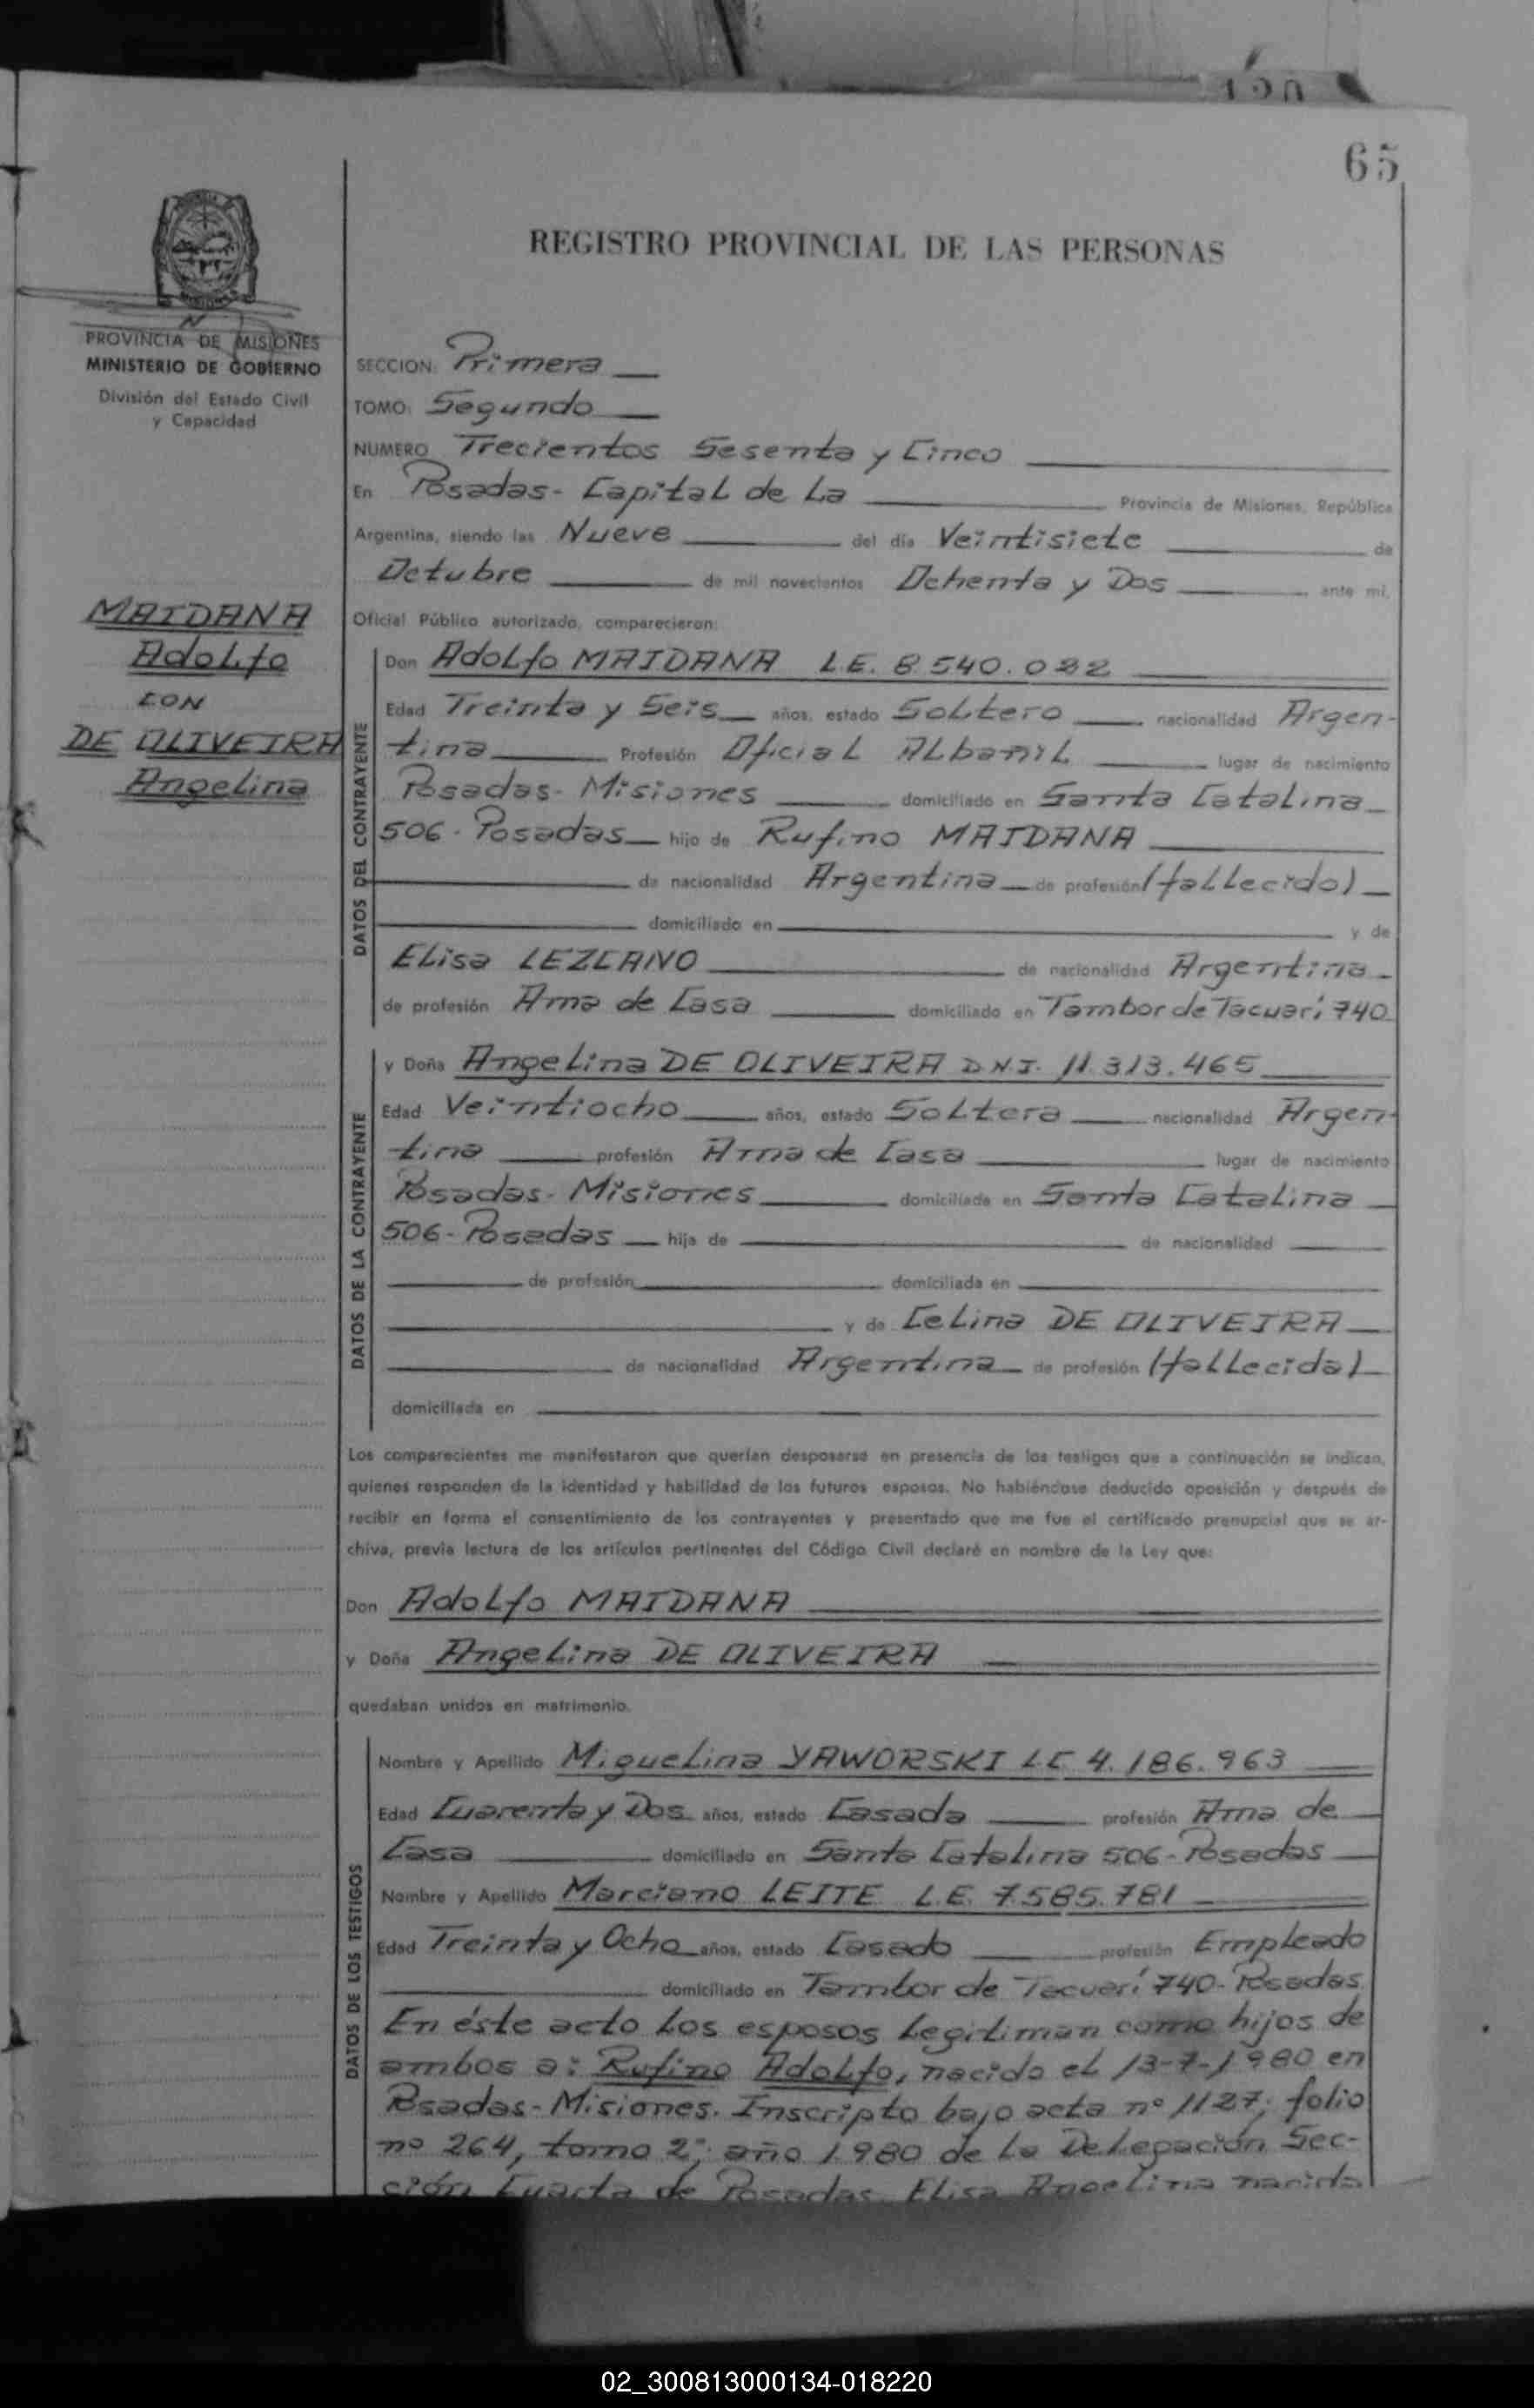 190
65
REGISTRO PROVINCIAL DE LAS PERSONAS
PROVINCIA DE MISIONES
MINISTERIO DE GOBIERNO
División del Estado Civil
y Capacidad
MAIDANA
Adolfo
CON
DE OLIVEIRA
Angelina
SECCION: Primera
TOMO: Segundo
NUMERO Trecientos Sesenta y Cinco
En Posadas - Capital de La Provincia de Misiones, República
Argentina, siendo las Nueve del día Veintisiete de
Octubre de mil novecientos Ochenta y Dos ante mi,
Oficial Público autorizado, comparecieron:
DATOS DEL CONTRAYENTE
Don Adolfo MAIDANA L.E. 8.540.082
Edad Treinta y Seis años, estado Soltero nacionalidad Argen-
tina Profesión Oficial Albañil lugar de nacimiento
Posadas - Misiones domiciliado en Santa Catalina
506 - Posadas hijo de Rufino MAIDANA
de nacionalidad Argentina de profesión (fallecido)
domiciliado en y de
Elisa LEZCANO de nacionalidad Argentina
de profesión Ama de Casa domiciliado en Tambor de Tacuarí 740
DATOS DE LA CONTRAYENTE
y Doña Angelina DE OLIVEIRA D.N.I. 11.313.465
Edad Veintiocho años, estado Soltera nacionalidad Argen-
tina profesión Ama de Casa lugar de nacimiento
Posadas - Misiones domiciliada en Santa Catalina
506 - Posadas hija de de nacionalidad
de profesión domiciliada en
y de Celina DE OLIVEIRA
de nacionalidad Argentina de profesión (fallecida)
domiciliada en
Los comparecientes me manifestaron que querían desposarse en presencia de los testigos que a continuación se indican,
quienes responden de la identidad y habilidad de los futuros esposos. No habiéndose deducido oposición y después de
recibir en forma el consentimiento de los contrayentes y presentado que me fue el certificado prenupcial que se ar-
chiva, previa lectura de los artículos pertinentes del Código Civil declaré en nombre de la Ley que:
Don Adolfo MAIDANA
y Doña Angelina DE OLIVEIRA
quedaban unidos en matrimonio.
DATOS DE LOS TESTIGOS
Nombre y Apellido Miguelina YAWORSKI L.C. 4.186.963
Edad Cuarenta y Dos años, estado Casada profesión Ama de
Casa domiciliado en Santa Catalina 506 - Posadas
Nombre y Apellido Marciano LEITE L.E. 7.585.781
Edad Treinta y Ocho años, estado Casado profesión Empleado
domiciliado en Tambor de Tacuarí 740 - Posadas
En éste acto los esposos legitiman como hijos de
ambos a: Rufino Adolfo, nacido el 13-7-1980 en
Posadas - Misiones. Inscripto bajo acta nº 1127, folio
nº 264, tomo 2º, año 1980 de la Delegación Sec-
ción Cuarta de Posadas. Elisa Angelina nacida
02_300813000134-018220